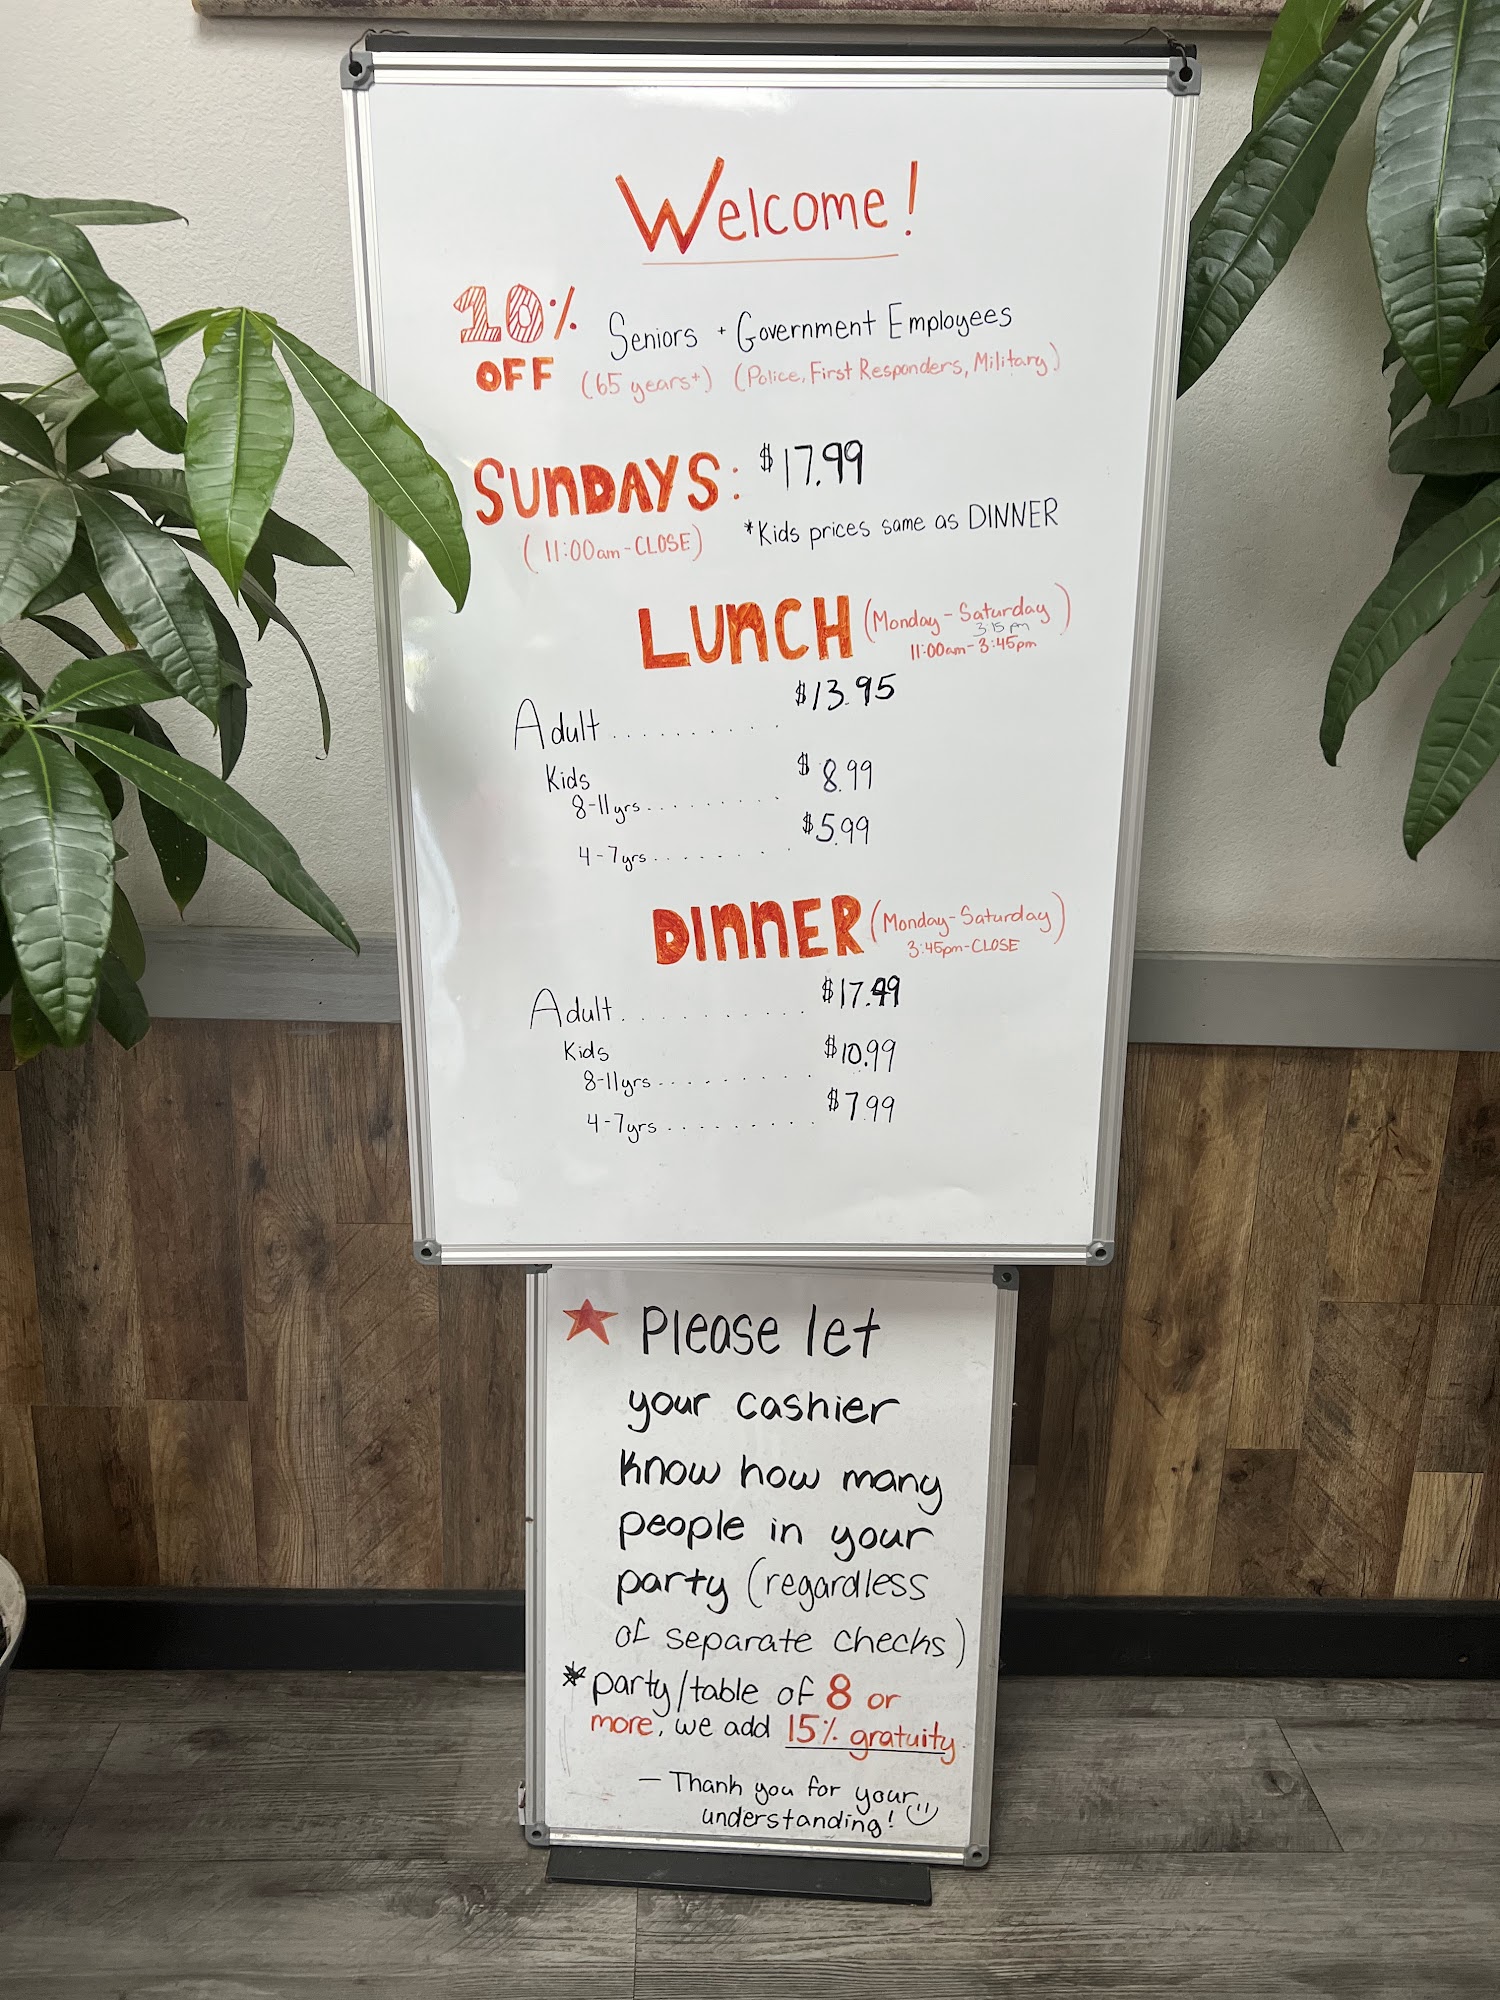 Welcome!
10% OFF Seniors + Government Employees
(65 years+) (Police, First Responders, Military)
SUNDAYS: $17.99
(11:00am-CLOSE) *Kids prices same as DINNER
LUNCH (Monday-Saturday)
3:15 pm
11:00am-3:45pm
$13.95
Adult..........
Kids $8.99
8-11yrs.........
$5.99
4-7yrs.......
DINNER (Monday-Saturday)
3:45pm-CLOSE
$17.99
Adult..........
Kids $10.99
8-11yrs.........
$7.99
4-7yrs.........
Please let
your cashier
know how many
people in your
party (regardless
of separate checks)
*party/table of 8 or
more, we add 15% gratuity.
— Thank you for your
understanding!